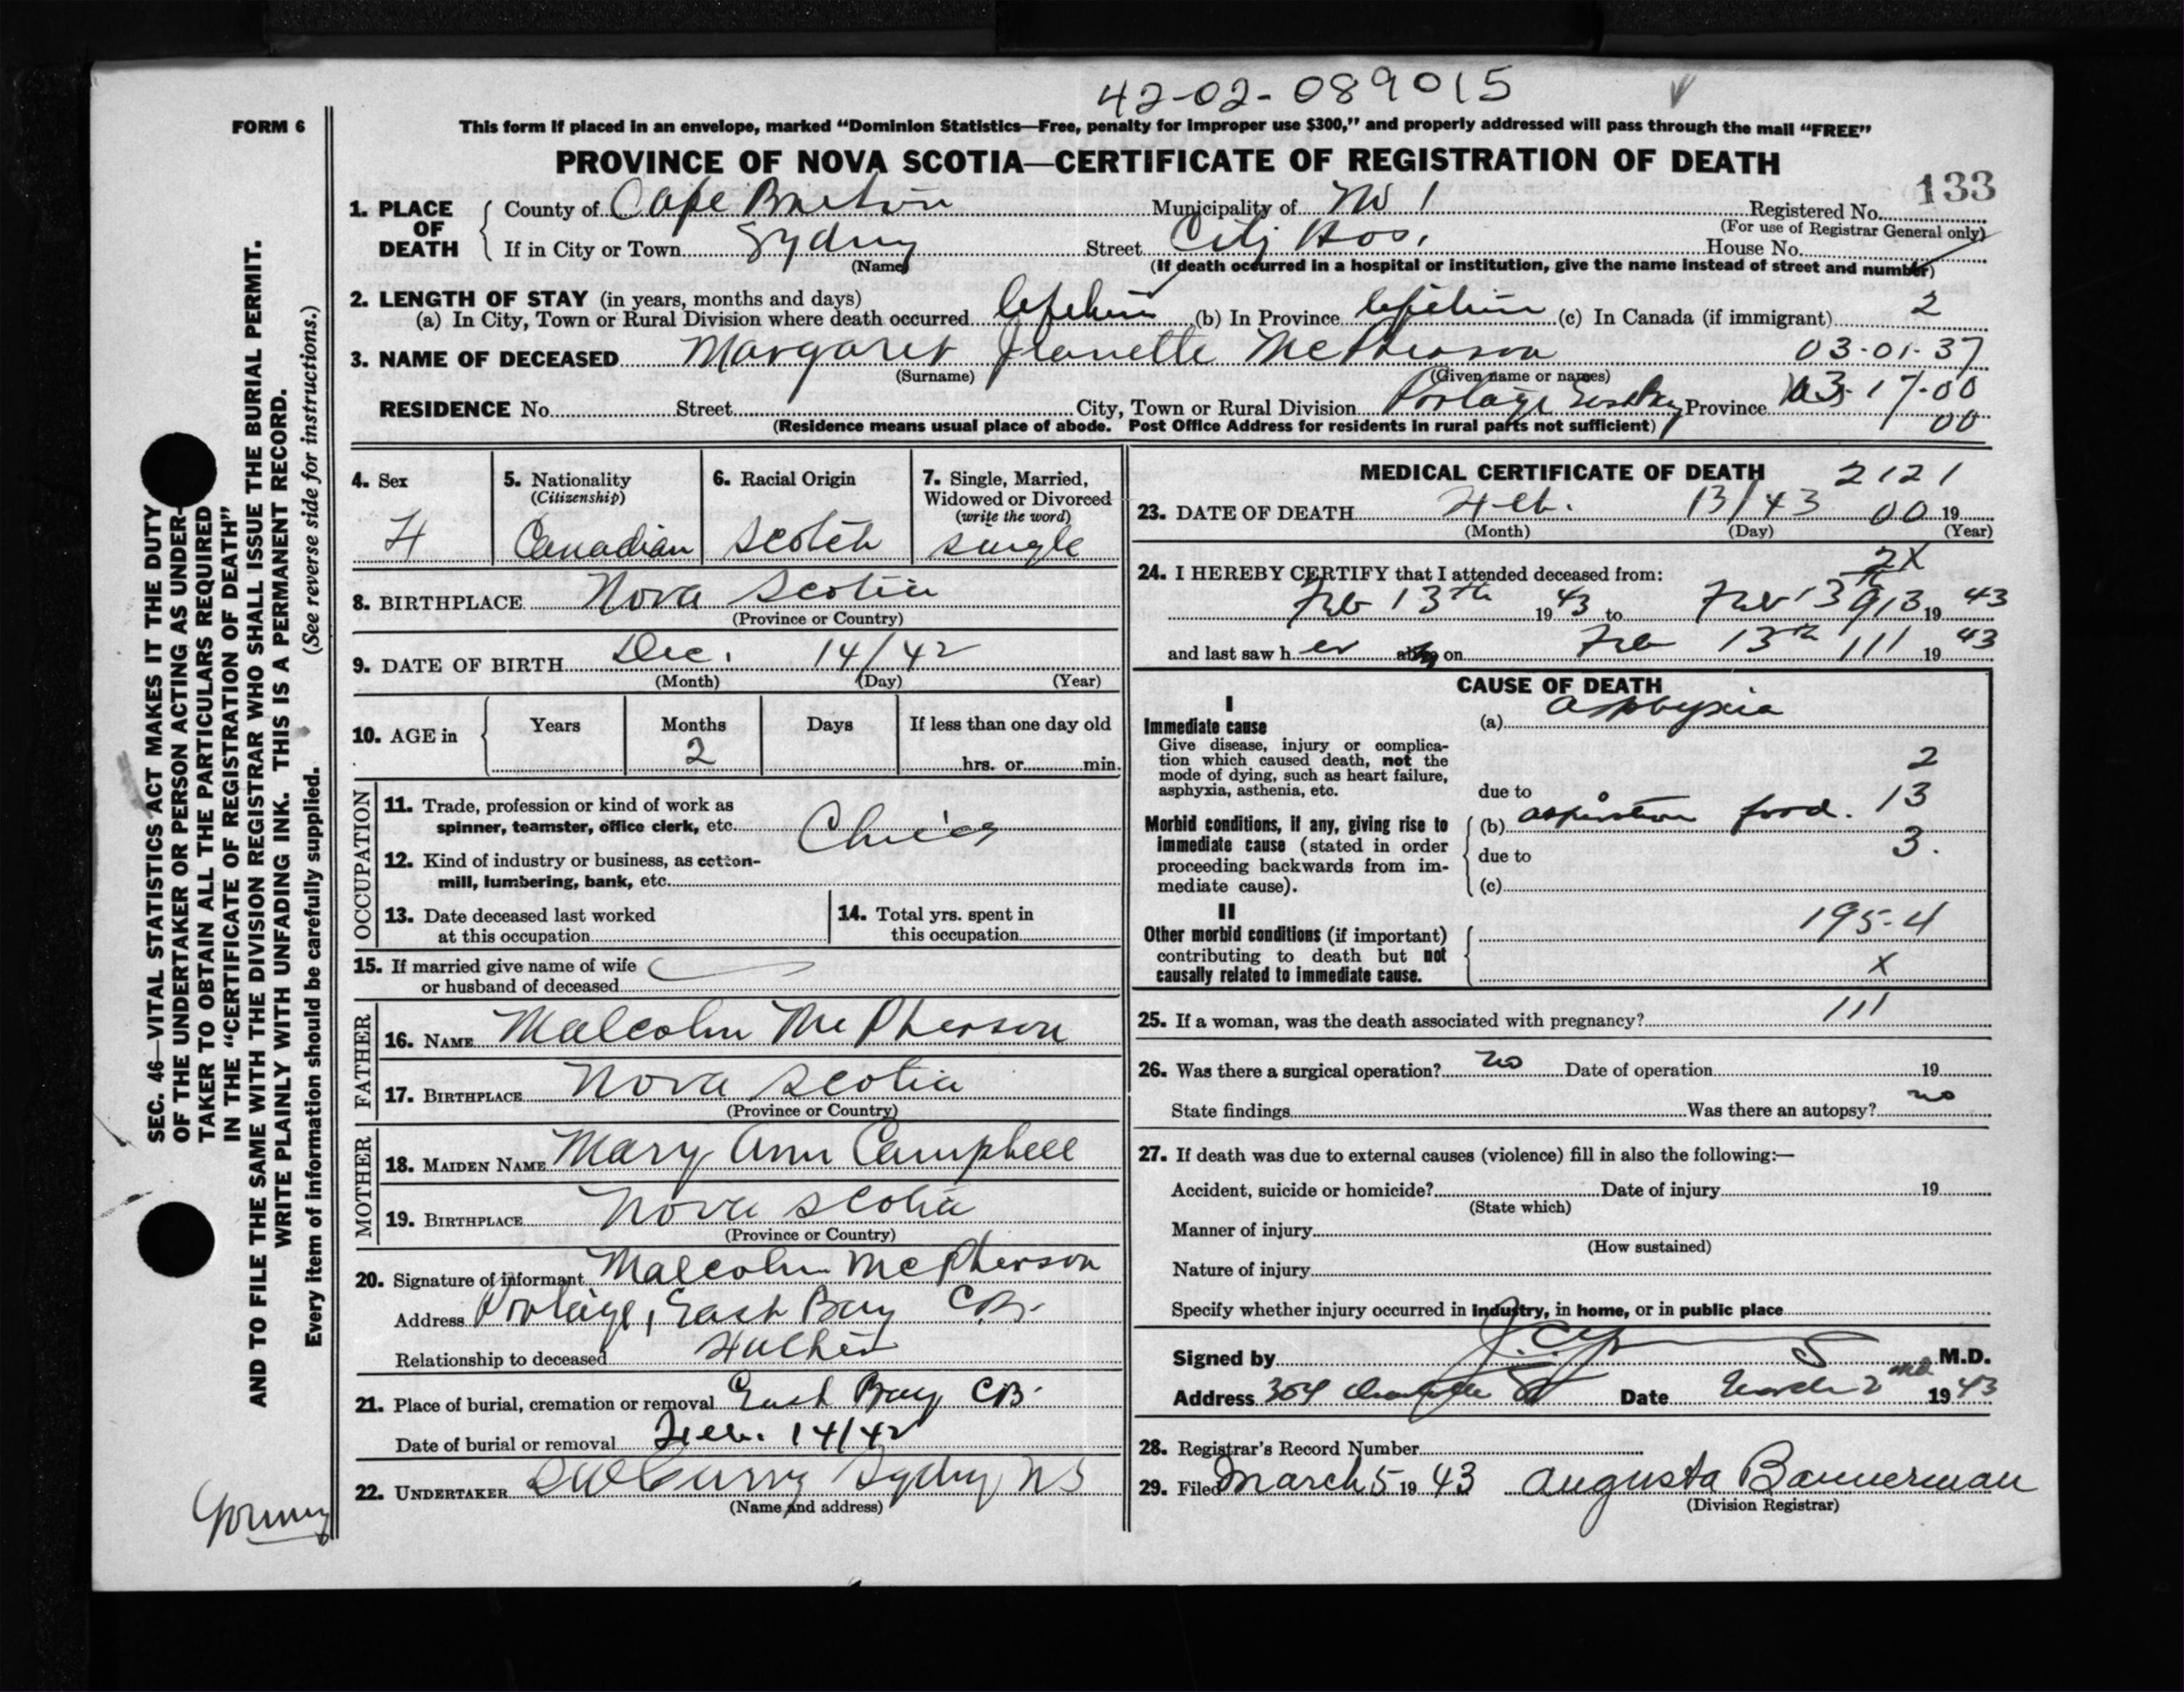 42-02-089015
FORM 6
This form if placed in an envelope, marked “Dominion Statistics—Free, penalty for improper use $300,” and properly addressed will pass through the mail “FREE”
PROVINCE OF NOVA SCOTIA—CERTIFICATE OF REGISTRATION OF DEATH
133
1. PLACE OF DEATH
County of Cape Breton Municipality of No 1 Registered No.
(For use of Registrar General only)
If in City or Town Sydney Street City Hos. House No.
(Name) (If death occurred in a hospital or institution, give the name instead of street and number)
2. LENGTH OF STAY (in years, months and days)
(a) In City, Town or Rural Division where death occurred lifetime (b) In Province lifetime (c) In Canada (if immigrant) 2
3. NAME OF DECEASED Margaret Jeanette McPherson 03-01-37
(Surname) (Given name or names)
RESIDENCE No. Street City, Town or Rural Division Portage East Bay Province 03-17-00
00
(Residence means usual place of abode. Post Office Address for residents in rural parts not sufficient)
4. Sex F
5. Nationality (Citizenship) Canadian
6. Racial Origin Scotch
7. Single, Married, Widowed or Divorced (write the word) single
8. BIRTHPLACE Nova Scotia
(Province or Country)
9. DATE OF BIRTH Dec. 14/42
(Month) (Day) (Year)
10. AGE in Years Months 2 Days If less than one day old
hrs. or min.
OCCUPATION
11. Trade, profession or kind of work as
spinner, teamster, office clerk, etc.
12. Kind of industry or business, as cotton-
mill, lumbering, bank, etc.
13. Date deceased last worked
at this occupation
14. Total yrs. spent in
this occupation
15. If married give name of wife
or husband of deceased
FATHER
16. NAME Malcolm McPherson
17. BIRTHPLACE Nova Scotia
(Province or Country)
MOTHER
18. MAIDEN NAME Mary Ann Campbell
19. BIRTHPLACE Nova Scotia
(Province or Country)
20. Signature of informant Malcolm McPherson
Address Portage, East Bay C.B.
Relationship to deceased Father
21. Place of burial, cremation or removal East Bay CB.
Date of burial or removal Feb. 14/42
22. UNDERTAKER Sydney NS
(Name and address)
MEDICAL CERTIFICATE OF DEATH 2121
23. DATE OF DEATH Feb. 13/43 00 19
(Month) (Day) (Year)
24. I HEREBY CERTIFY that I attended deceased from: 2X
Feb 13th 1943 to Feb 13th 913 19 43
and last saw h er alive on Feb 13th 111 19 43
CAUSE OF DEATH
I
Immediate cause
Give disease, injury or complica-
tion which caused death, not the
mode of dying, such as heart failure,
asphyxia, asthenia, etc.
(a) asphyxia
2
due to
Morbid conditions, if any, giving rise to
immediate cause (stated in order
proceeding backwards from im-
mediate cause).
(b) aspiration food. 13
due to 3.
(c)
II
Other morbid conditions (if important)
contributing to death but not
causally related to immediate cause.
195-4
X
25. If a woman, was the death associated with pregnancy? 111
26. Was there a surgical operation? no Date of operation 19
State findings Was there an autopsy? no
27. If death was due to external causes (violence) fill in also the following:—
Accident, suicide or homicide? Date of injury 19
(State which)
Manner of injury
(How sustained)
Nature of injury
Specify whether injury occurred in industry, in home, or in public place
Signed by M.D.
Address 304 Charlotte St Date March 2nd 1943
28. Registrar's Record Number
29. Filed March 5 1943 Augusta Bannerman
(Division Registrar)
SEC. 46—VITAL STATISTICS ACT MAKES IT THE DUTY
OF THE UNDERTAKER OR PERSON ACTING AS UNDER-
TAKER TO OBTAIN ALL THE PARTICULARS REQUIRED
IN THE “CERTIFICATE OF REGISTRATION OF DEATH”
AND TO FILE THE SAME WITH THE DIVISION REGISTRAR WHO SHALL ISSUE THE BURIAL PERMIT.
WRITE PLAINLY WITH UNFADING INK. THIS IS A PERMANENT RECORD.
Every item of information should be carefully supplied. (See reverse side for instructions.)